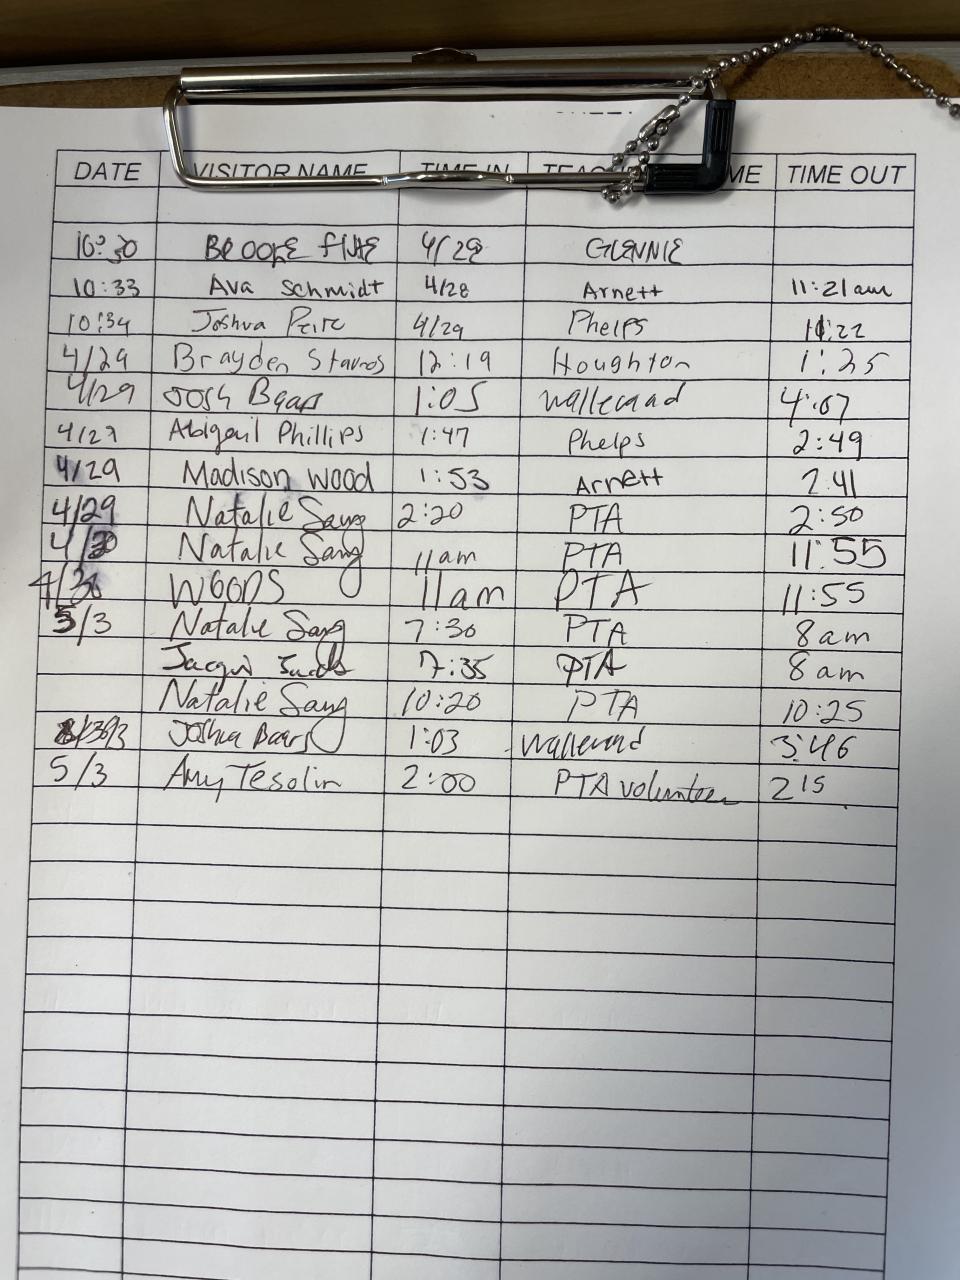 DATE VISITOR NAME TIME IN ME TIME OUT
10:30 BROOKE 4/29 GLENNIE
10:33 Ava Schmidt 4/28 Arnett 11:21am
10:34 Joshua 4/29 Phelps 11:22
4/29 Brayden Stavros 12:19 Houghton 1:25
4/29 Josh Baars 1:05 4:07
4/29 Abigail Phillips 1:47 Phelps 2:49
4/29 Madison Wood 1:53 Arnett 2:41
4/29 Natalie Sang 2:20 PTA 2:50
4/30 Natalie Sang 11am PTA 11:55
4/30 WOODS 11am PTA 11:55
5/3 Natalie Sang 7:30 PTA 8am
Jacqui 7:35 PTA 8am
Natalie Sang 10:20 PTA 10:25
Joshua Baars 1:03 3:46
5/3 Amy Tesolin 2:00 PTA volunteer 2 15